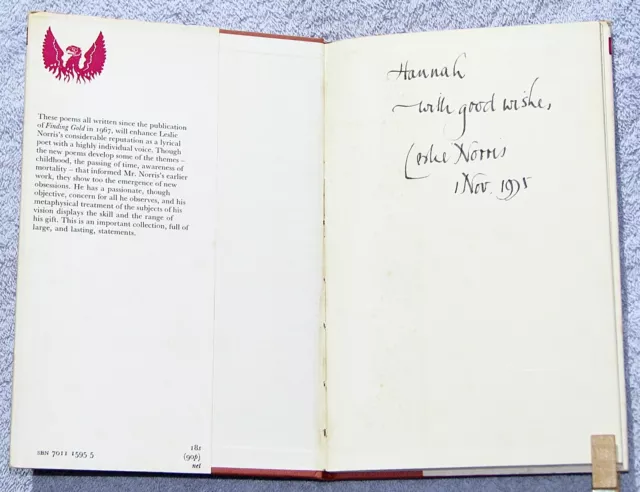 These poems all written since the publication
of Finding Gold in 1967, will enhance Leslie
Norris's considerable reputation as a lyrical
poet with a highly individual voice. Though
the new poems develop some of the themes –
childhood, the passing of time, awareness of
mortality – that informed Mr. Norris's earlier
work, they show too the emergence of new
obsessions. He has a passionate, though
objective, concern for all he observes, and his
metaphysical treatment of the subjects of his
vision displays the skill and the range of
his gift. This is an important collection, full of
large, and lasting, statements.
SBN 7011 1595 5
18s
(90p)
net
Hannah
– with good wishes,
Leslie Norris
1 Nov. 1975